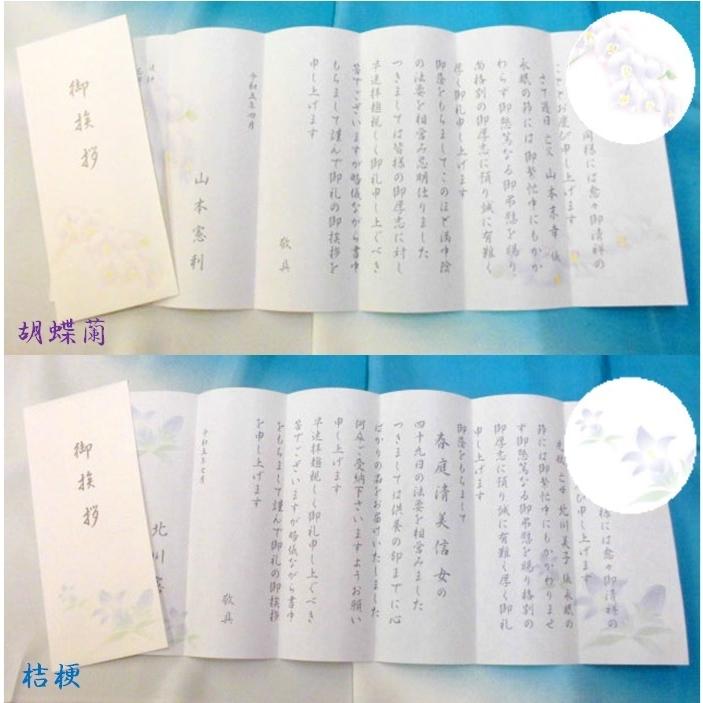 御挨拶
同様には愈々御清祥の
こととお慶び申し上げます
さて過日 亡父 山本末幸 儀
永眠の節には御繁忙中にもかか
わらず御懇篤なる御弔慰を賜り
尚格別の御厚志に預り誠に有難く
厚く御礼申し上げます
御蔭をもちましてこのほど満中陰
の法要を相営み忌明仕りました
つきましては皆様の御厚志に対し
早速拝趨親しく御礼申し上ぐべき
筈でございますが略儀ながら書中
もちまして謹んで御礼の御挨拶を
申し上げます
敬具
令和五年四月
山本憲利
胡蝶蘭
御挨拶
様には愈々御清祥の
び申し上げます
亡母 北川美子 儀 永眠の
節には御繁忙中にもかかわりませ
ず御懇篤なる御弔慰を賜り格別の
御厚志に預り誠に有難く厚く御礼
申し上げます
御蔭をもちまして
春庭清美信女の
四十九日の法要を相営みました
つきましては供養の印までに心
ばかりの品をお届けいたしました
何卒ご受納下さいますようお願い
申し上げます
早速拝趨親しく御礼申し上ぐべき
筈でございますが略儀ながら書中
をもちまして謹んで御礼の御挨拶
を申し上げます
敬具
令和五年七月
北川
桔梗